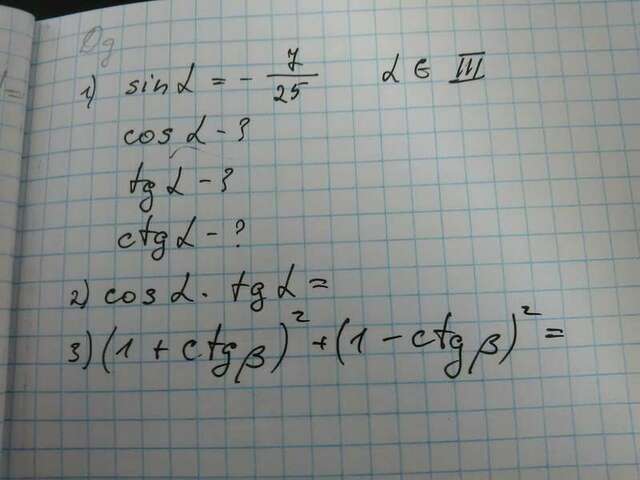 1) sin α = - 7/25 α ∈ III
cos α - ?
tg α - ?
ctg α - ?
2) cos α · tg α =
3) (1 + ctg β)² + (1 - ctg β)² =